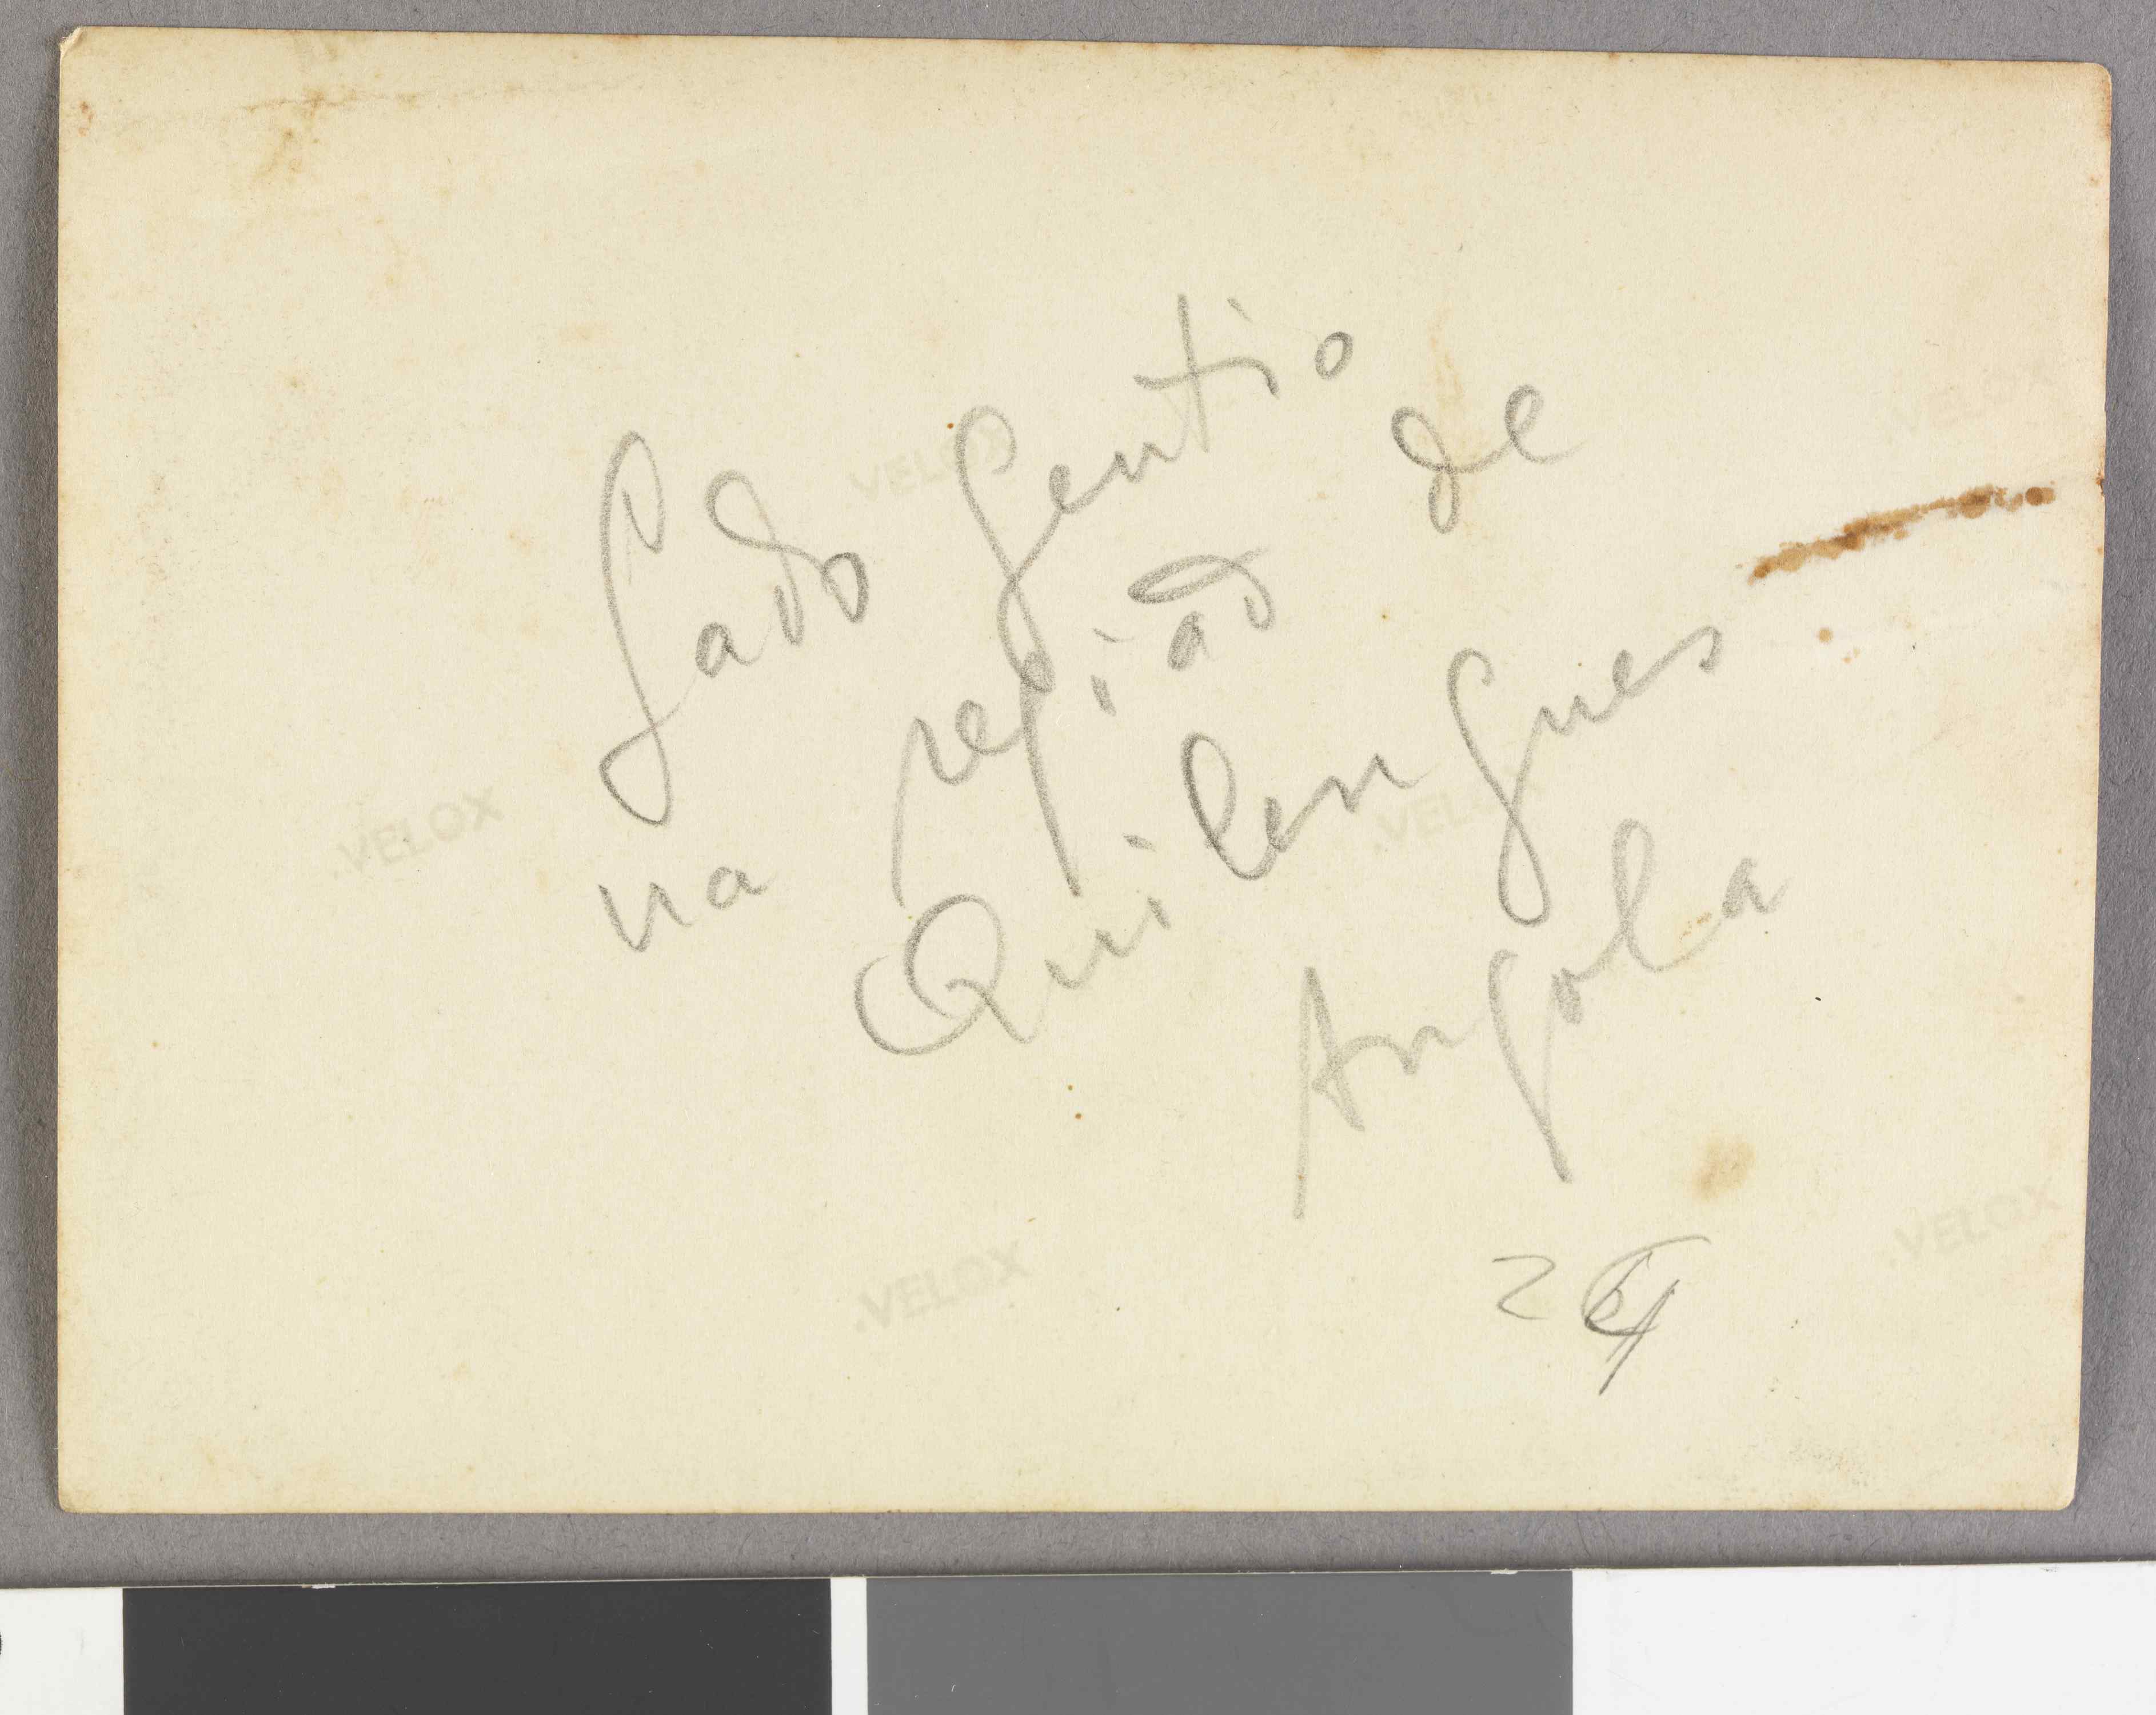 Gado gentio
na região de
Quilengues
Angola
VELOX
VELOX
VELOX
VELOX
VELOX